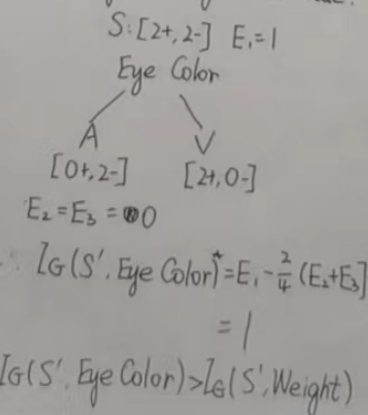 S:[2+,2-] E₁=1
Eye Color
A V
[0+,2-] [2+,0-]
E₂=E₃=0
∴ IG(S',Eye Color)*=E₁-2/4(E₂+E₃]
=1
IG(S',Eye Color)>IG(S',Weight)